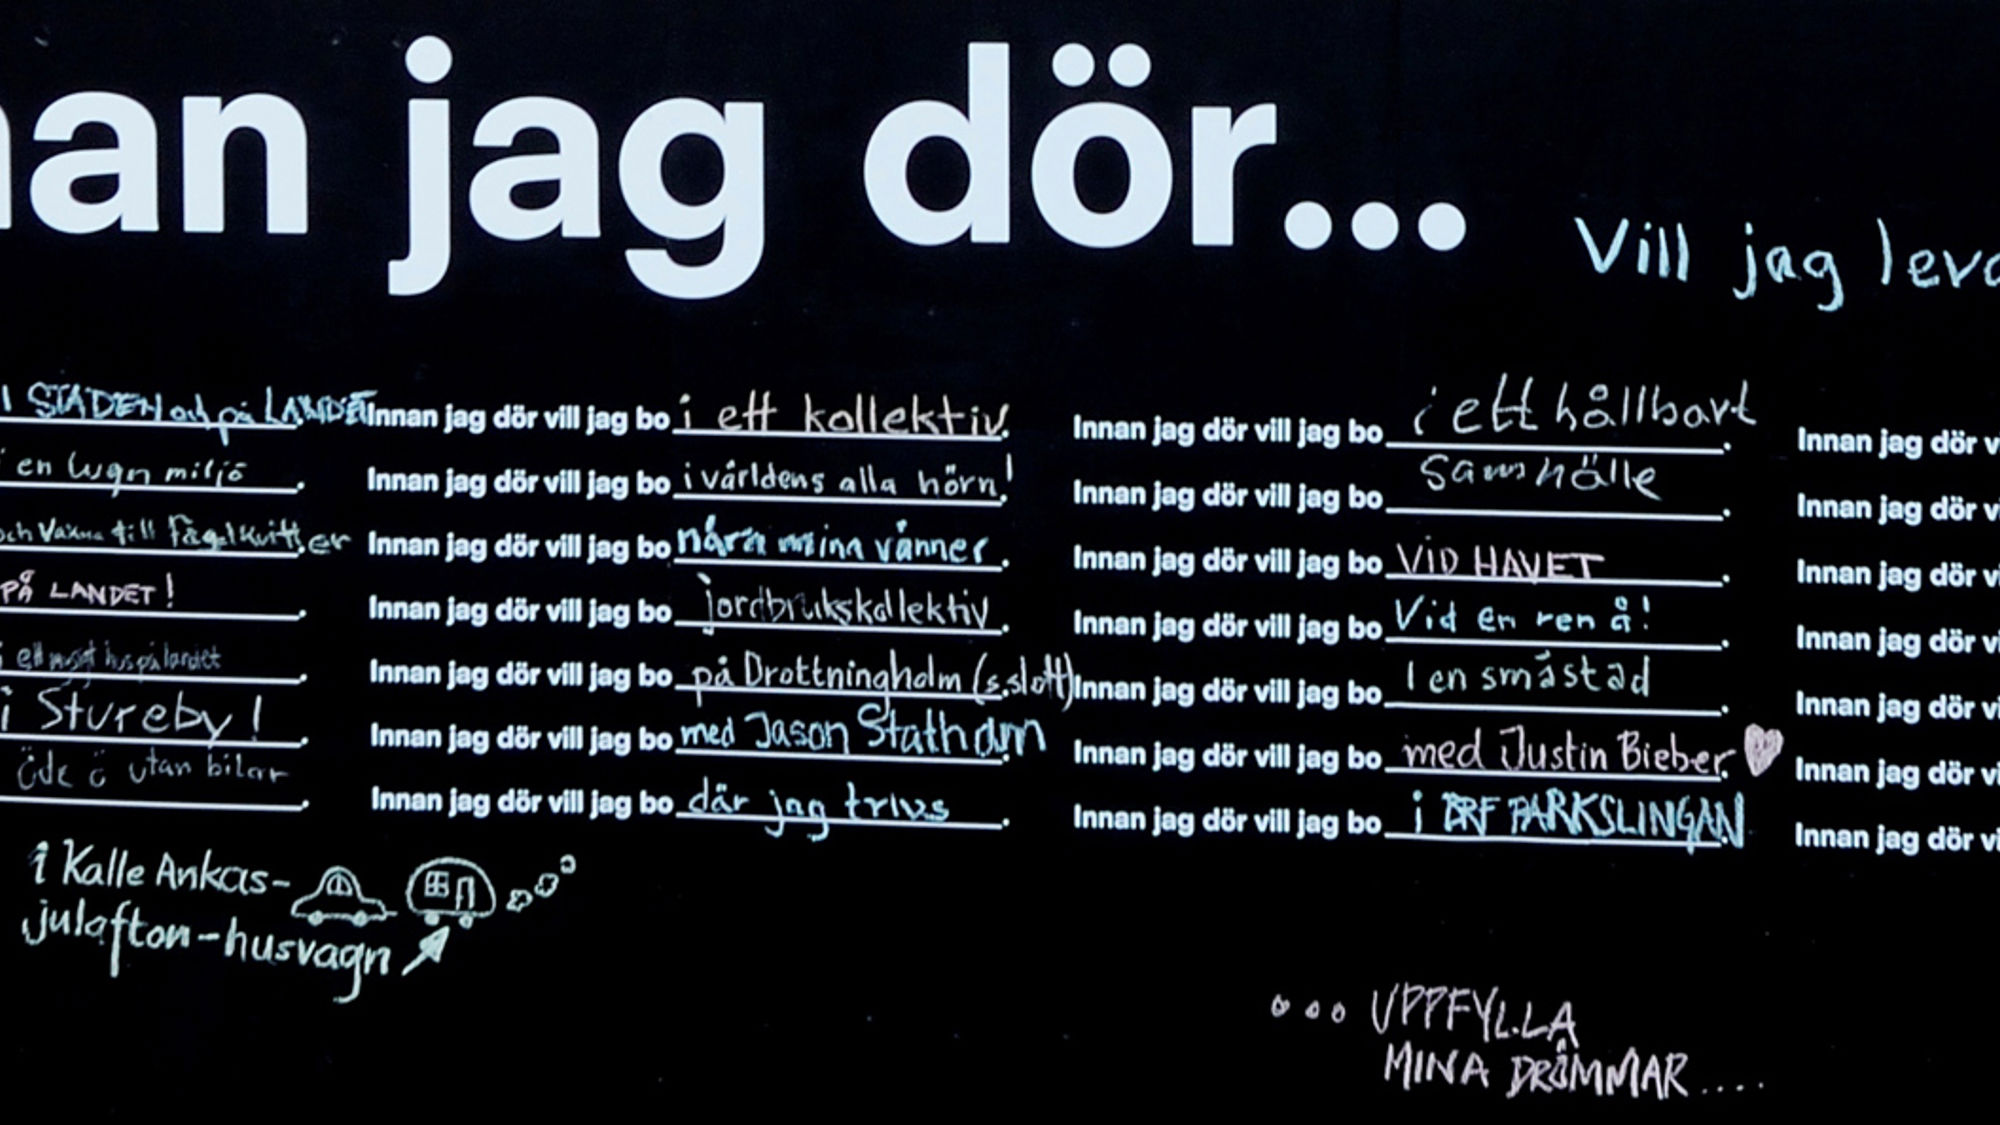 nan jag dör...
Vill jag leva
I STADEN och på LANDET
i en lugn miljö
och vakna till fågelkvitter
PÅ LANDET!
i ett mysigt hus på landet
i Stureby!
öde ö utan bilar
Innan jag dör vill jag bo i ett kollektiv.
Innan jag dör vill jag bo i världens alla hörn!
Innan jag dör vill jag bo nära mina vänner.
Innan jag dör vill jag bo jordbrukskollektiv.
Innan jag dör vill jag bo på Drottningholm (s.slott)
Innan jag dör vill jag bo med Jason Statham.
Innan jag dör vill jag bo där jag trivs.
Innan jag dör vill jag bo i ett hållbart.
Innan jag dör vill jag bo Samhälle.
Innan jag dör vill jag bo VID HAVET.
Innan jag dör vill jag bo Vid en ren å!.
Innan jag dör vill jag bo I en småstad.
Innan jag dör vill jag bo med Justin Bieber.
Innan jag dör vill jag bo i BRF PARKSLINGAN.
Innan jag dör vi
Innan jag dör vi
Innan jag dör vi
Innan jag dör vi
Innan jag dör vi
Innan jag dör vi
Innan jag dör vi
i Kalle Ankas-
julafton-husvagn
... UPPFYLLA
MINA DRÖMMAR....